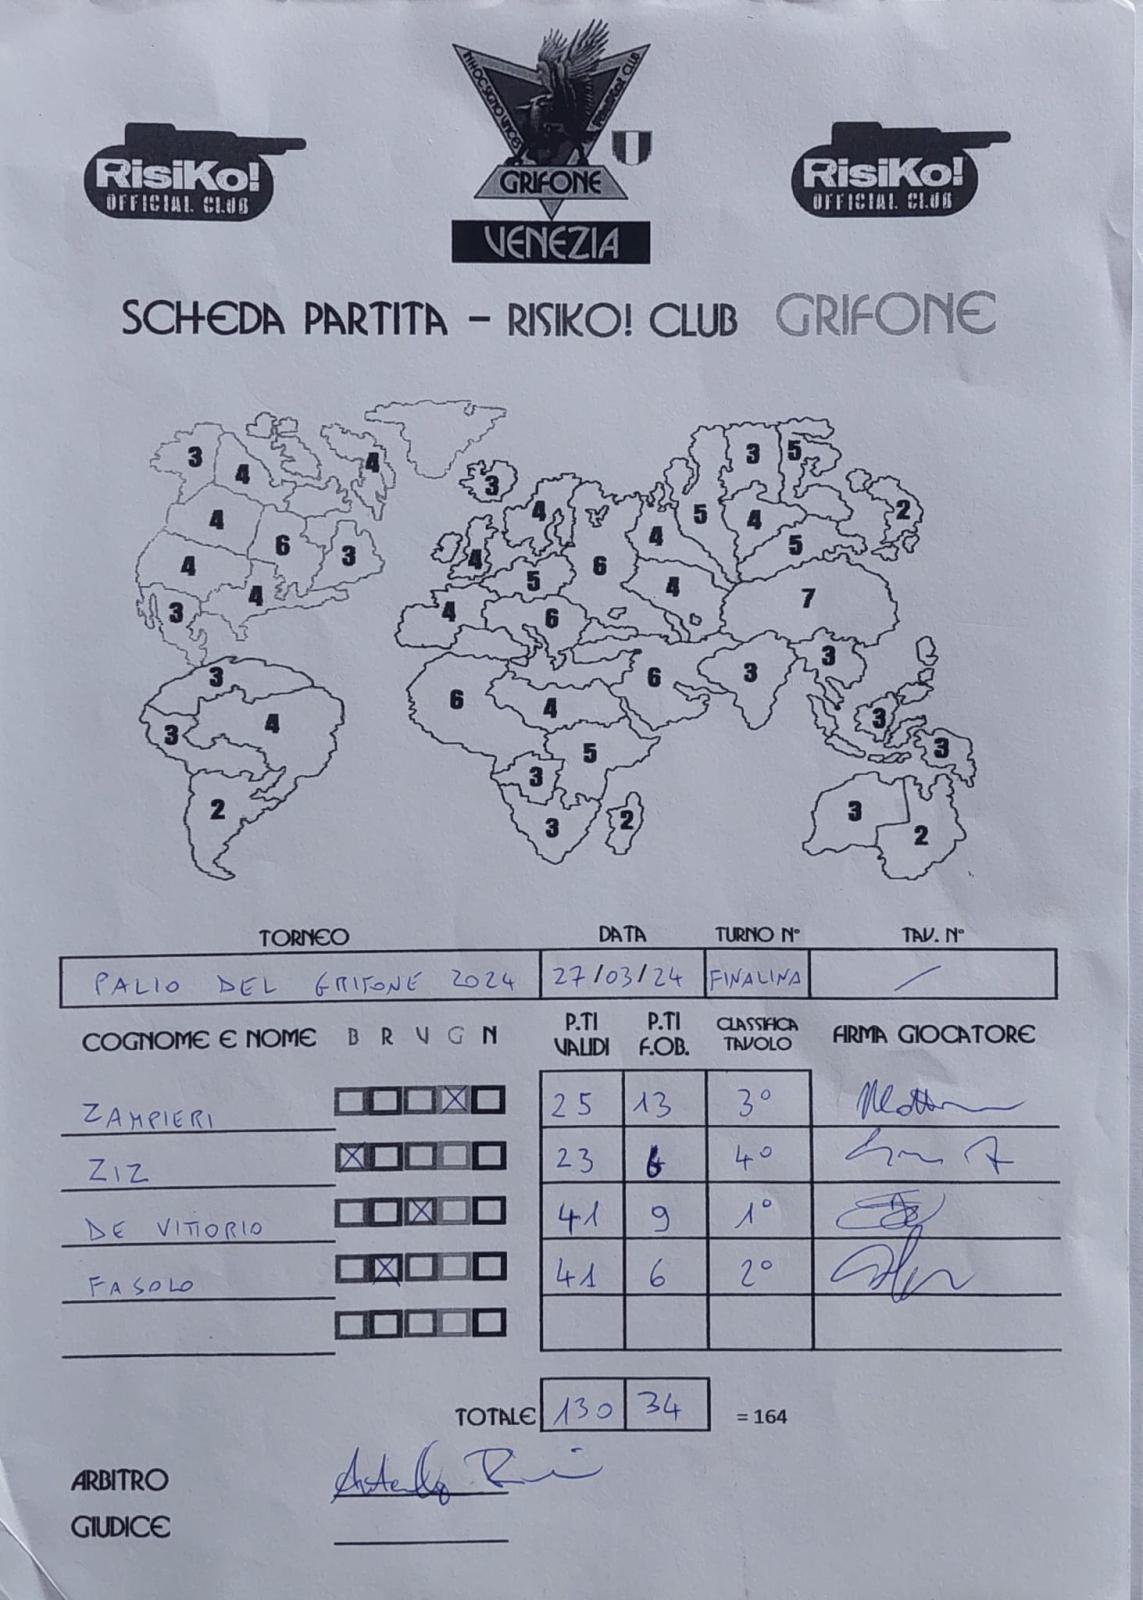 IN HOC SIGNO VINCES
RISIKO! CLUB
RisiKo!
OFFICIAL CLUB
GRIFONE
VENEZIA
RisiKo!
OFFICIAL CLUB
SCHEDA PARTITA – RISIKO! CLUB GRIFONE
3 4 4 3 3 5
4 6 3 4 4 5 4 2
4 4 4 5 6 4 5
3 4 6 7
3 6 4 6 3 3
3 4 5 3 3
2 3 3 2 3 2
TORNEO DATA TURNO N° TAV. N°
PALIO DEL GRIFONE 2024 27/03/24 FINALINA /
COGNOME E NOME B R V G N P.TI VALIDI P.TI F.OB. CLASSIFICA TAVOLO FIRMA GIOCATORE
ZAMPIERI X 25 13 3°
ZIZ X 23 6 4°
DE VITTORIO X 41 9 1°
FASOLO X 41 6 2°
TOTALE 130 34 = 164
ARBITRO
GIUDICE